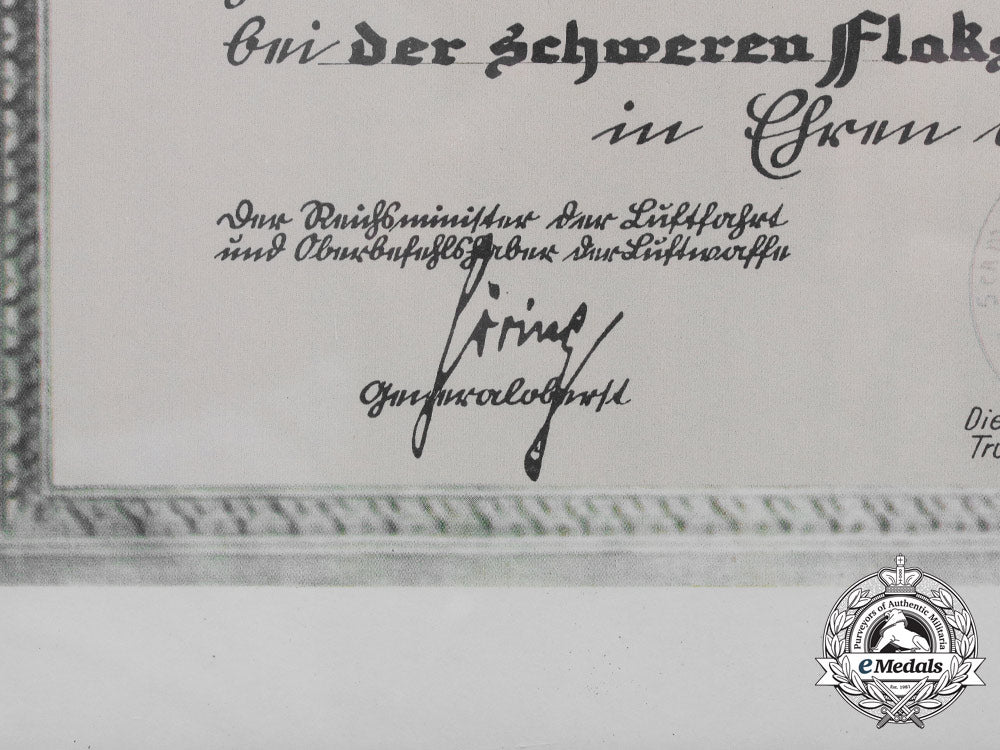 bei der schweren Flak
in Ehren
Der Reichsminister der Luftfahrt
und Oberbefehlshaber der Luftwaffe
Göring
Generaloberst
Die
Tru
Purveyors of Authentic Militaria
eMedals
Est. 1987